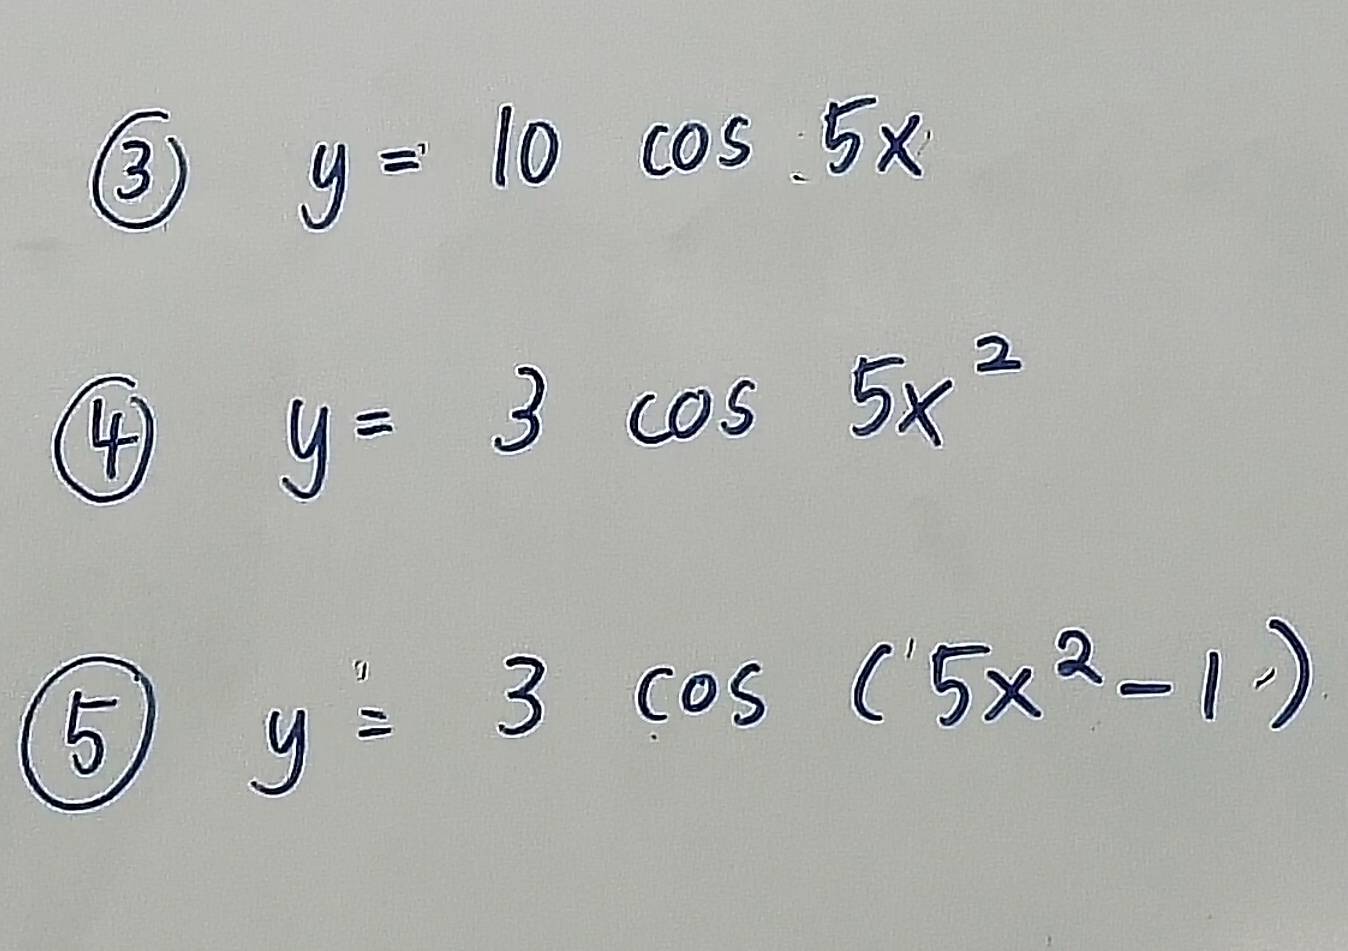 ③ y = 10 cos 5x
④ y = 3 cos 5x²
⑤ y = 3 cos (5x² - 1)